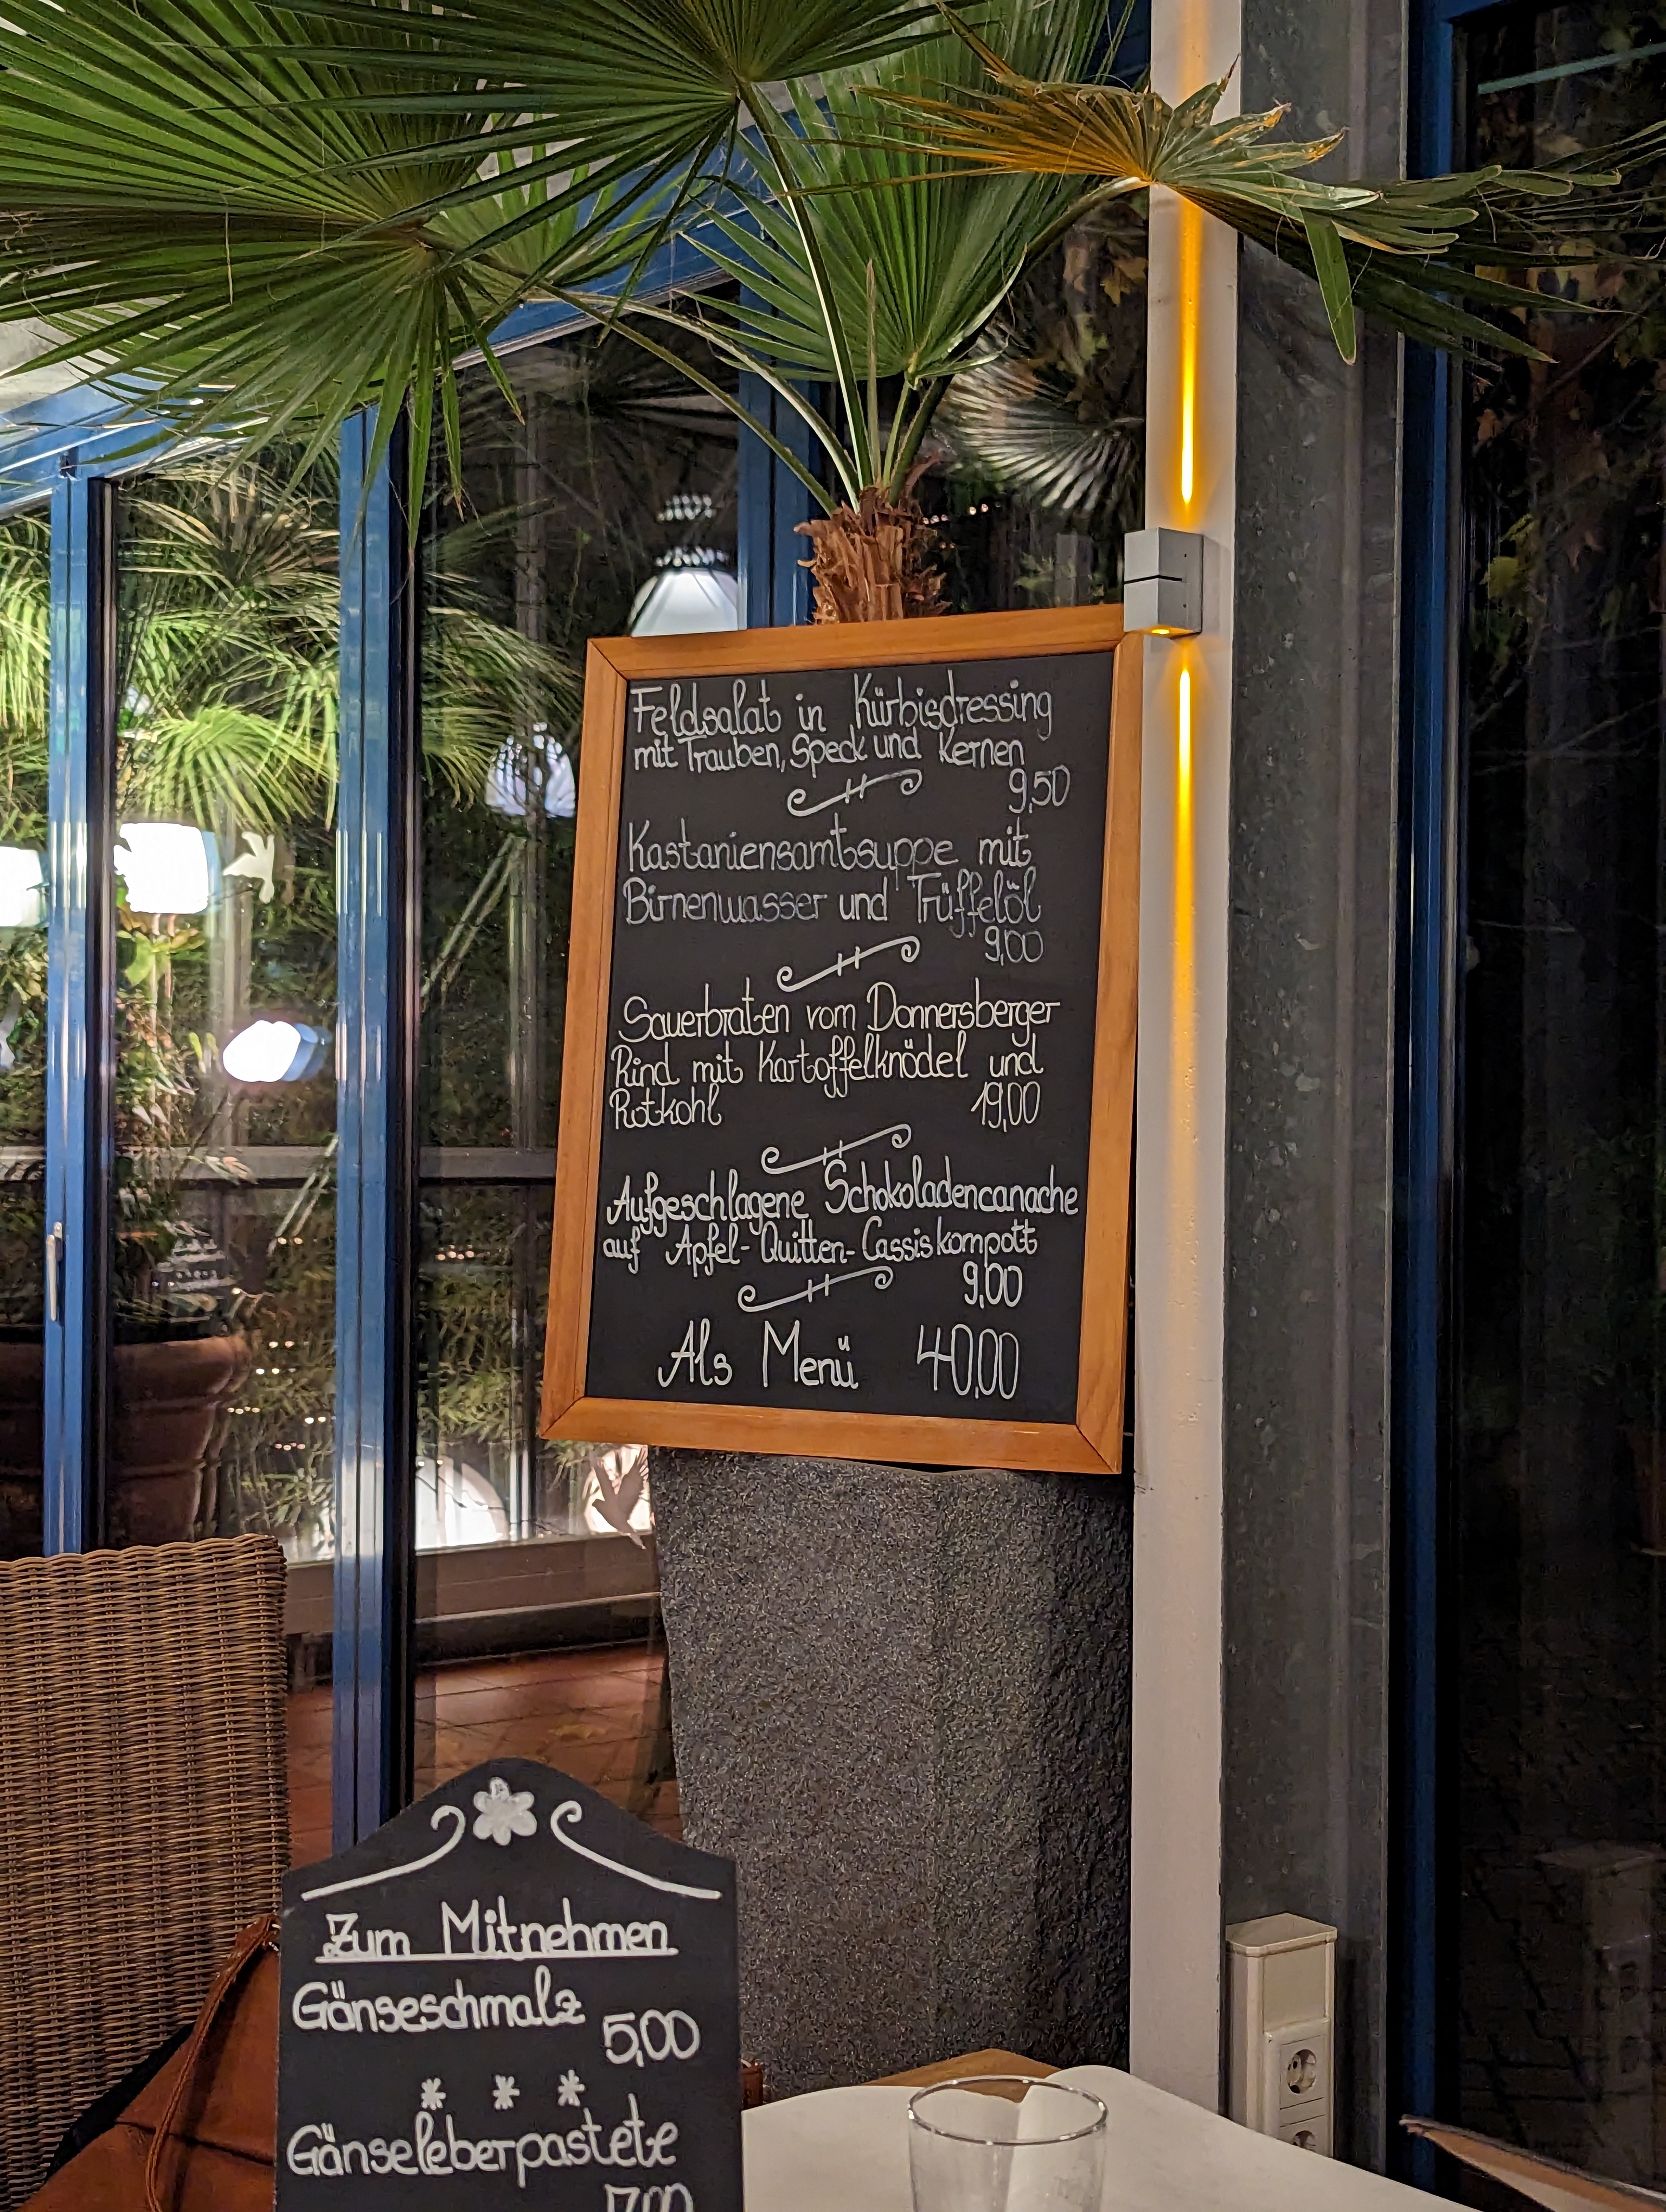 Feldsalat in Kürbisdressing
mit Trauben, Speck und Kernen
9,50
Kastaniensamtsuppe mit
Birnenwasser und Trüffelöl
9,00
Sauerbraten vom Donnersberger
Rind mit Kartoffelknödel und
Rotkohl 19,00
Aufgeschlagene Schokoladencanache
auf Apfel-Quitten-Cassiskompott
9,00
Als Menü 40,00
Zum Mitnehmen
Gänseschmalz
5,00
* * *
Gänseleberpastete
7,00